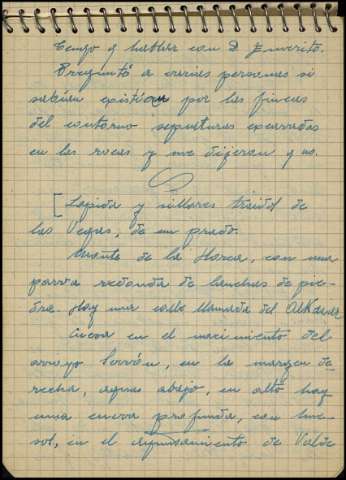 Tengo q hablar con D. Emerito.
Pregunté a varias personas si
sabían existían por las fincas
del contorno sepulturas excavadas
en las rocas y me dijeron q no.
[Lapida y sillares traidos de
las Vegas, de un prado.
de la Horca, con una
parva redonda de lanchas de pie-
dra. Hay una calle llamada del Alkazar
Cueva en el nacimiento del
arroyo en la margen de-
recha, aguas abajo, en alto hay
una cueva profunda, con
en el de Valde